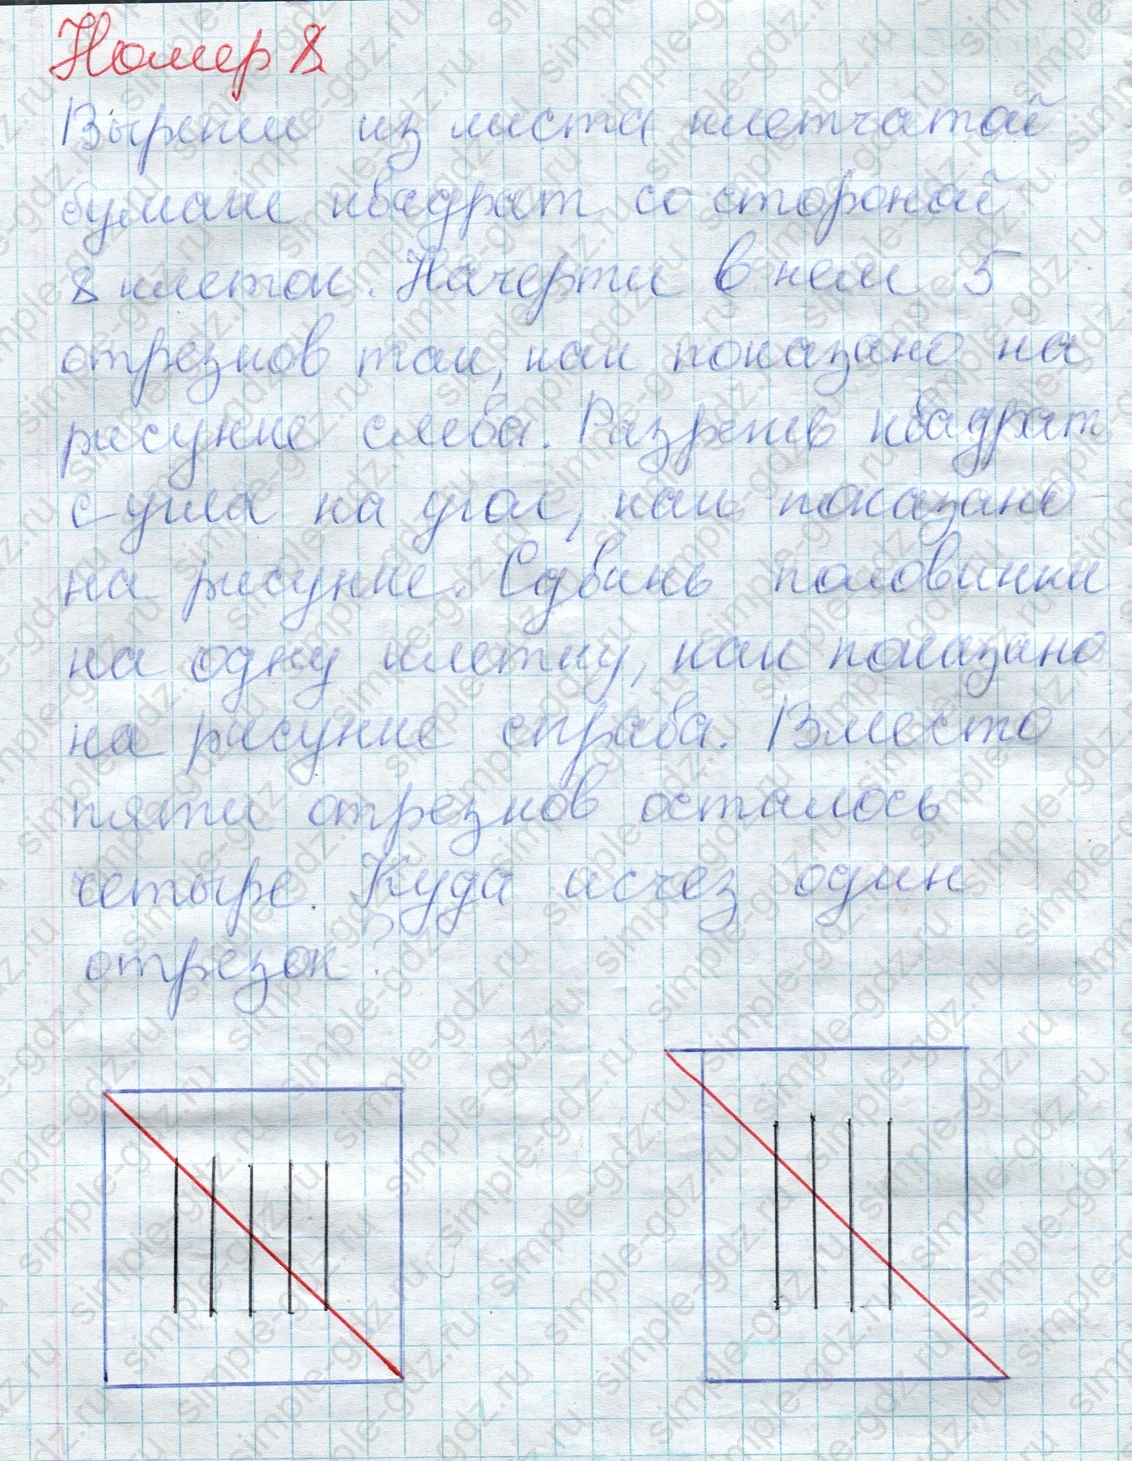 Номер 8.
Вырежи из листа клетчатой
бумаги квадрат со стороной
8 клеток. Начерти в нем 5
отрезков так, как показано на
рисунке слева. Разрежь квадрат
с угла на угол, как показано
на рисунке. Сдвинь половинки
на одну клетку, как показано
на рисунке справа. Вместо
пяти отрезков осталось
четыре. Куда исчез один
отрезок?
simple-gdz.ru